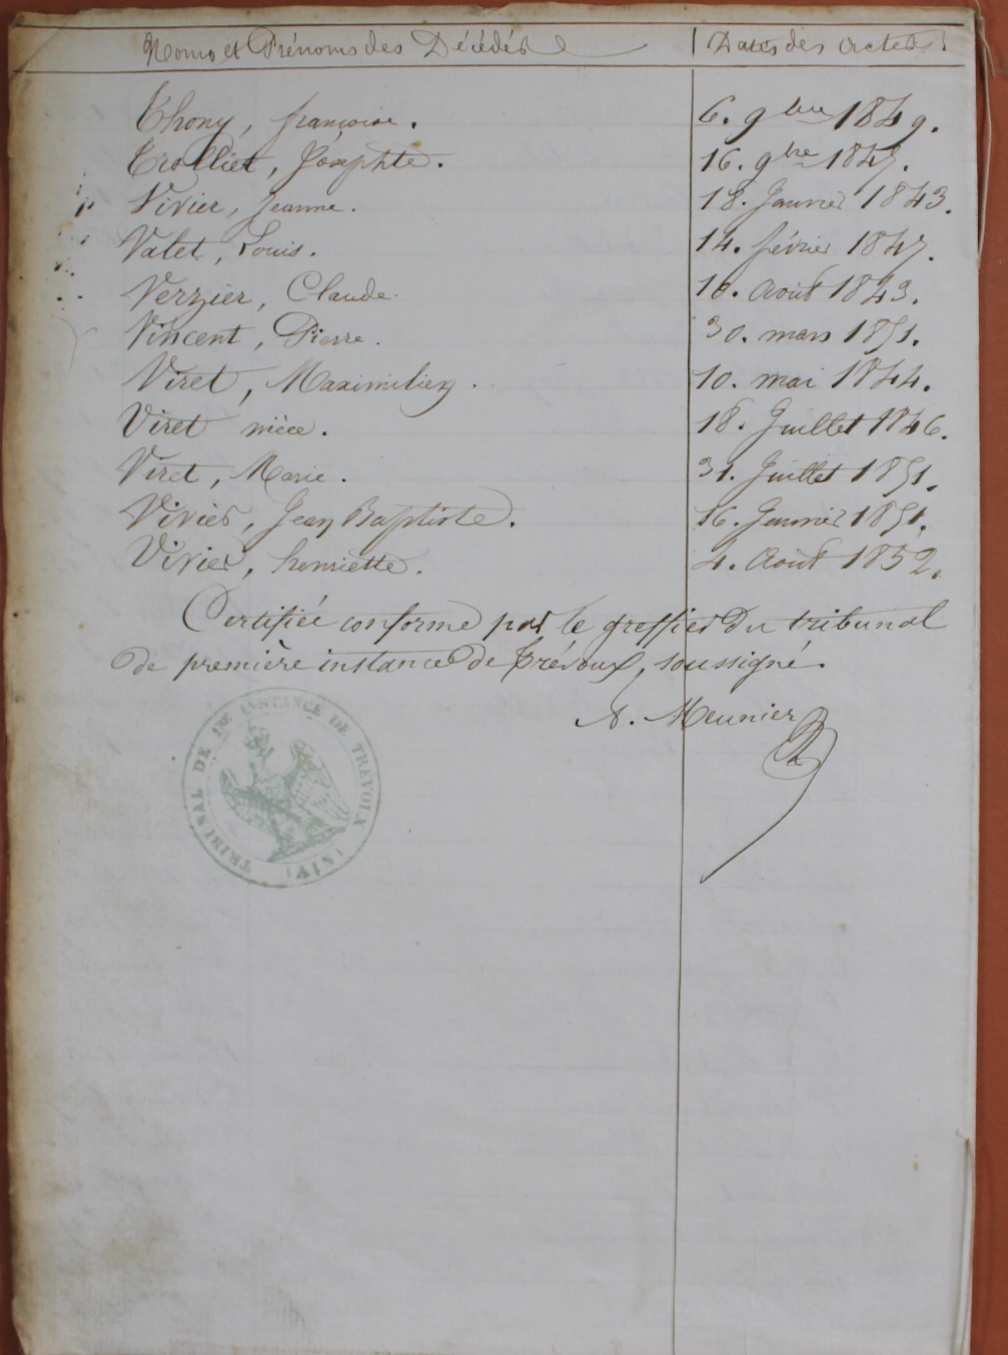 Noms et Prénoms des Décédés Dates des Actes
Thony, françoise. 6. 9bre 1849.
Trolliet, Josephte. 16. 9bre 1847.
Vivier, Jeanne. 18. Janvier 1843.
Valet, Louis. 14. février 1847.
Verzier, Claude. 10. Août 1843.
Vincent, Pierre. 30. mars 1851.
Viret, Maximilien. 10. mai 1844.
Viret nièce. 18. Juillet 1846.
Viret, Marie. 31. Juillet 1851.
Vivier, Jean Baptiste. 16. Janvier 1851.
Vivier, henriette. 4. Août 1852.
Certifiée conforme par le greffier du tribunal
de première instance de Trévoux, soussigné.
Meunier
TRIBUNAL DE 1RE INSTANCE DE TREVOUX
(AIN)